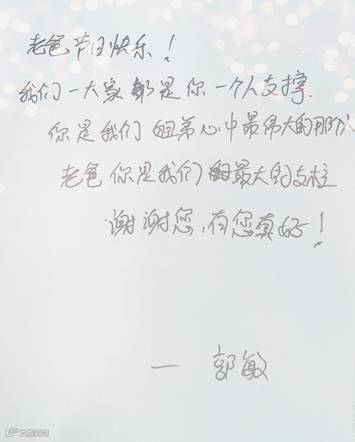 老爸节日快乐！
我们一大家都是你一个人支撑.
你是我们姐弟心中最伟大的那个
老爸你是我们最大的支柱
谢谢您,有您真好！
— 郭敏